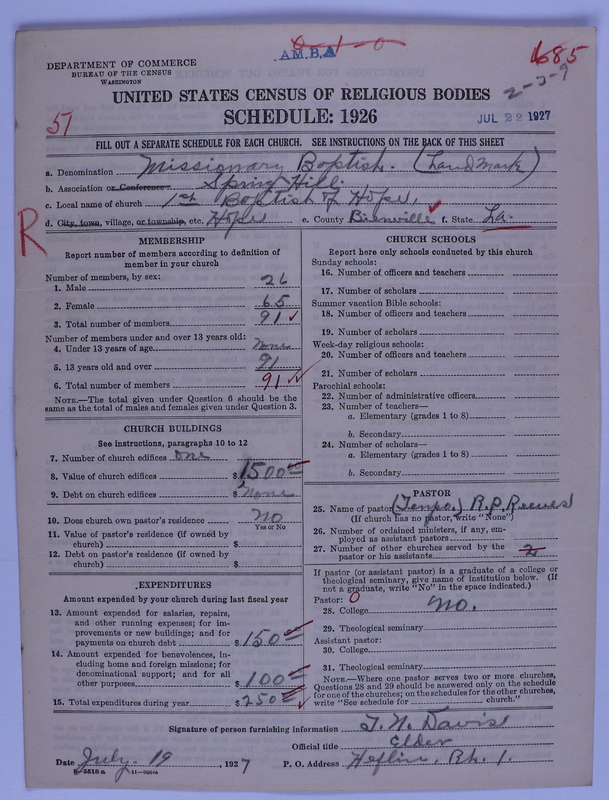 A.M.B.A
0-1-0
1685
2-3-9
DEPARTMENT OF COMMERCE
BUREAU OF THE CENSUS
WASHINGTON
UNITED STATES CENSUS OF RELIGIOUS BODIES
SCHEDULE: 1926
JUL 22 1927
51
FILL OUT A SEPARATE SCHEDULE FOR EACH CHURCH. SEE INSTRUCTIONS ON THE BACK OF THIS SHEET
a. Denomination Missionary Baptish. (Land Mark)
b. Association or Conference Spring Hill
c. Local name of church 1st Baptist of Hope,
d. City, town, village, or township, etc. Hope e. County Bienville f. State La.
R
MEMBERSHIP
Report number of members according to definition of
member in your church
Number of members, by sex:
1. Male 26
2. Female 65
3. Total number of members 91
Number of members under and over 13 years old:
4. Under 13 years of age None
5. 13 years old and over 91
6. Total number of members 91
NOTE.—The total given under Question 6 should be the
same as the total of males and females given under Question 3.
CHURCH BUILDINGS
See instructions, paragraphs 10 to 12
7. Number of church edifices one
8. Value of church edifices $1500
9. Debt on church edifices $ None
10. Does church own pastor's residence No
Yes or No
11. Value of pastor's residence (if owned by
church) $
12. Debt on pastor's residence (if owned by
church) $
EXPENDITURES
Amount expended by your church during last fiscal year
13. Amount expended for salaries, repairs,
and other running expenses; for im-
provements or new buildings; and for
payments on church debt $150
14. Amount expended for benevolences, in-
cluding home and foreign missions; for
denominational support; and for all
other purposes $100
15. Total expenditures during year $250
CHURCH SCHOOLS
Report here only schools conducted by this church
Sunday schools:
16. Number of officers and teachers
17. Number of scholars
Summer vacation Bible schools:
18. Number of officers and teachers
19. Number of scholars
Week-day religious schools:
20. Number of officers and teachers
21. Number of scholars
Parochial schools:
22. Number of administrative officers
23. Number of teachers—
a. Elementary (grades 1 to 8)
b. Secondary
24. Number of scholars—
a. Elementary (grades 1 to 8)
b. Secondary
PASTOR
25. Name of pastor (Tempo.) R.P. Reeves
(If church has no pastor, write "None")
26. Number of ordained ministers, if any, em-
ployed as assistant pastors
27. Number of other churches served by the
pastor or his assistants 2
If pastor (or assistant pastor) is a graduate of a college or
theological seminary, give name of institution below. (If
not a graduate, write "No" in the space indicated.)
Pastor: 0
28. College No.
29. Theological seminary
Assistant pastor:
30. College
31. Theological seminary
NOTE.—Where one pastor serves two or more churches,
Questions 28 and 29 should be answered only on the schedule
for one of the churches; on the schedules for the other churches,
write "See schedule for church."
Signature of person furnishing information T. N. Davis
Official title Elder
Date July. 19, 1927 P. O. Address Heflin, Rh. 1.
8-5518 a